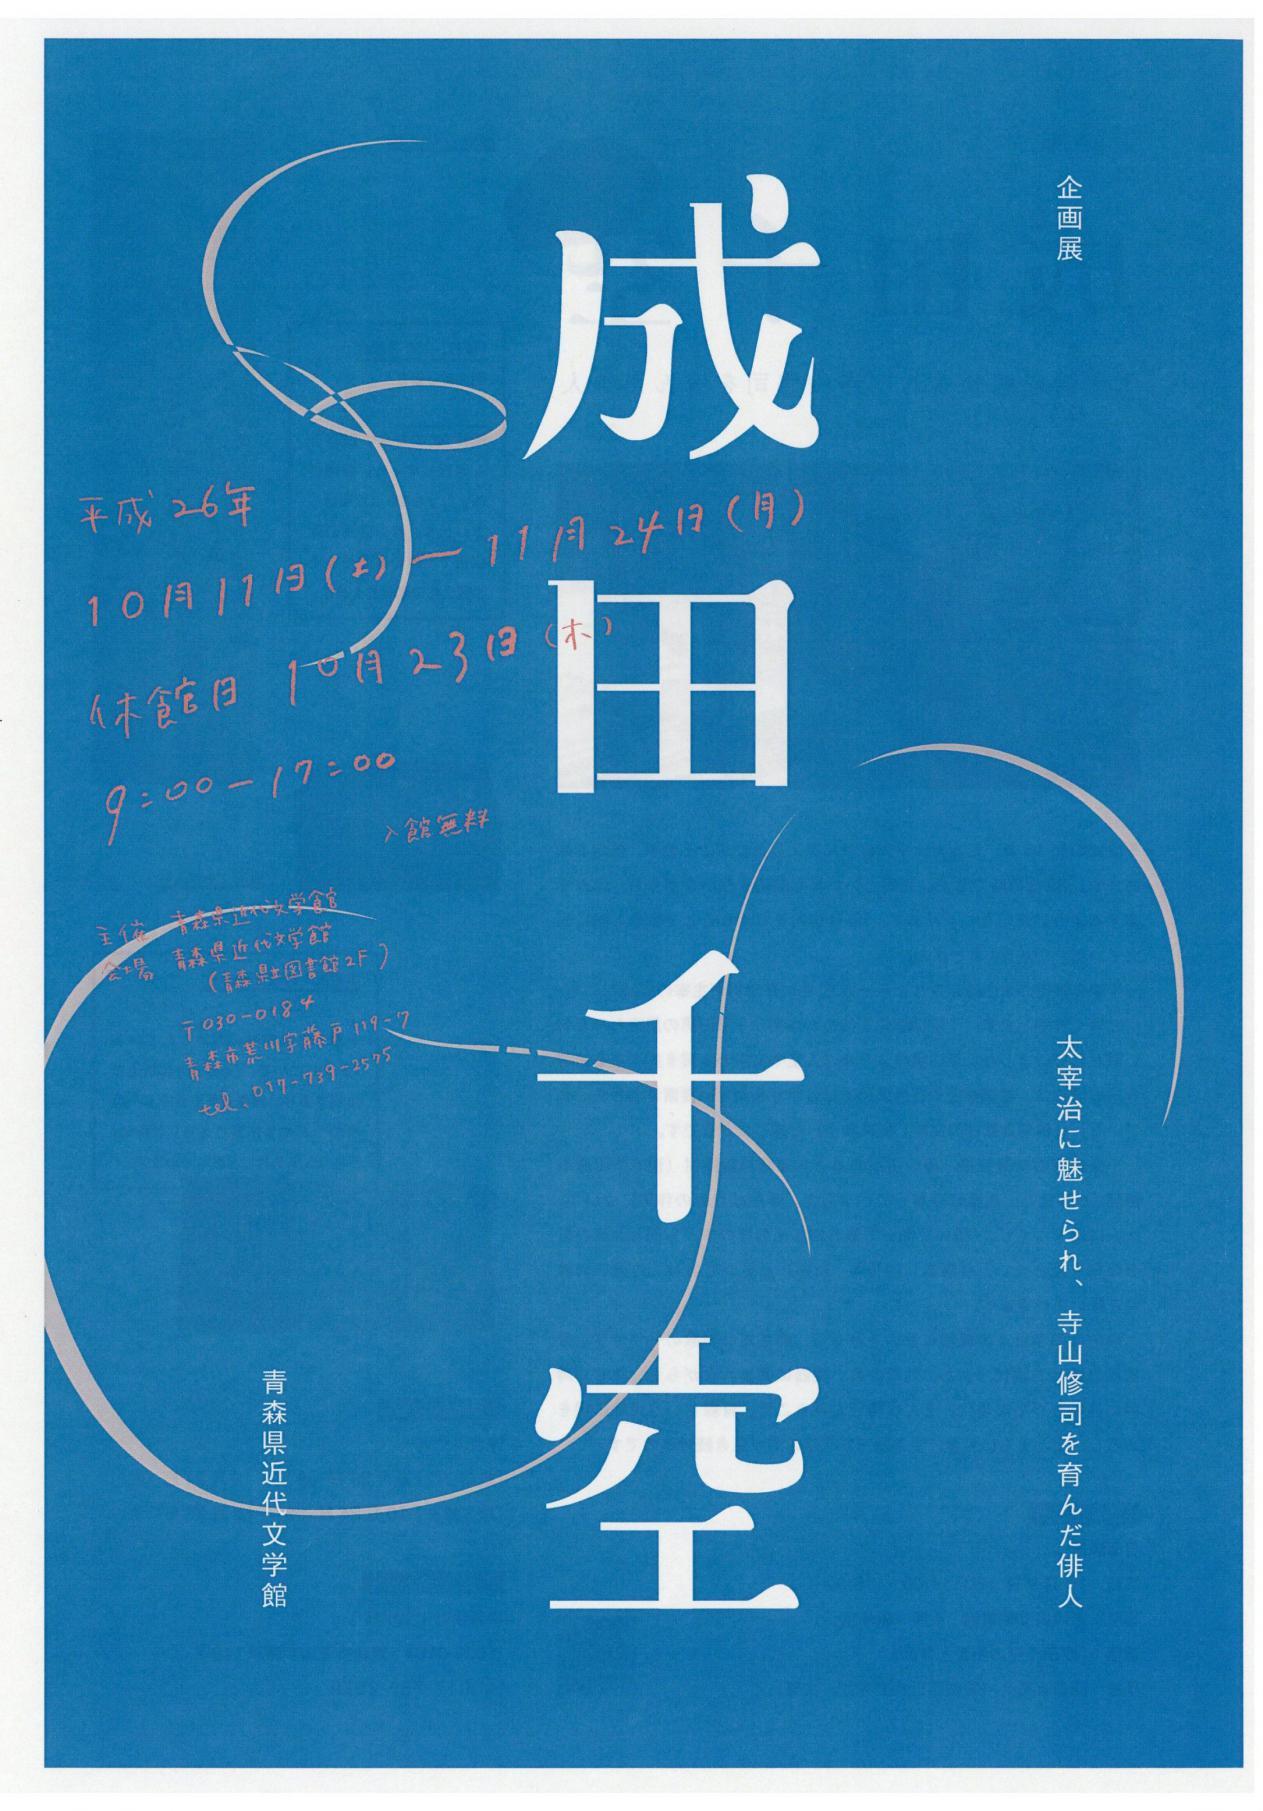 企画展
成田千空
太宰治に魅せられ、寺山修司を育んだ俳人
平成26年
10月11日(土)ー11月24日(月)
休館日 10月23日(木)
9:00ー17:00
入館無料
主催 青森県近代文学館
会場 青森県近代文学館
(青森県立図書館2F)
〒030-0184
青森市荒川字藤戸119-7
tel. 017-739-2575
青森県近代文学館